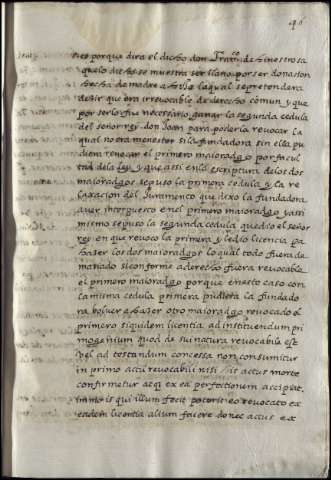 40
porque dira el dicho don Fran.co de hinestrosa
quelo dicho se muestra ser llano por ser donacion
hecha de madre a hijo la qual se pretendera
desir que era irrevocable de derecho comun y que
por serlo fue necessario ganar la segunda cedula
del señor rey don Joan para poderla revocar la
qual no era menester si la fundadora sin ella pu
diera revocar el primero maioradgo por facul
tad de la ley y que assi en la escriptura de los dos
maioradgos se puso la primera cedula y la re
laxacion del Juramento que dixo la fundadora
aver interpuesto en el primero maioradgo y assi
mismo se puso la segunda cedula que dio el señor
rey en que revoco la primera y le dio licencia pa
hazer los dos maioradgos lo qual todo fuera de
masiado si conforme a derecho fuera revocable
el primero maioradgo porque en este caso con
la misma cedula primera pudiera la fundado
ra bolver a hazer otro maioradgo revocado el
primero siquidem licentia ad instituendum pri
mogenium quod de sui natura revocabile est
vel ad testandum concessa non consumitur
in primo actu revocabili nisi is actus morte
confirmetur atq ex ea perfectionem accipiat
immo is qui illum fecit poterit eo revocato ex
eadem licentia alium facere donec actus ex